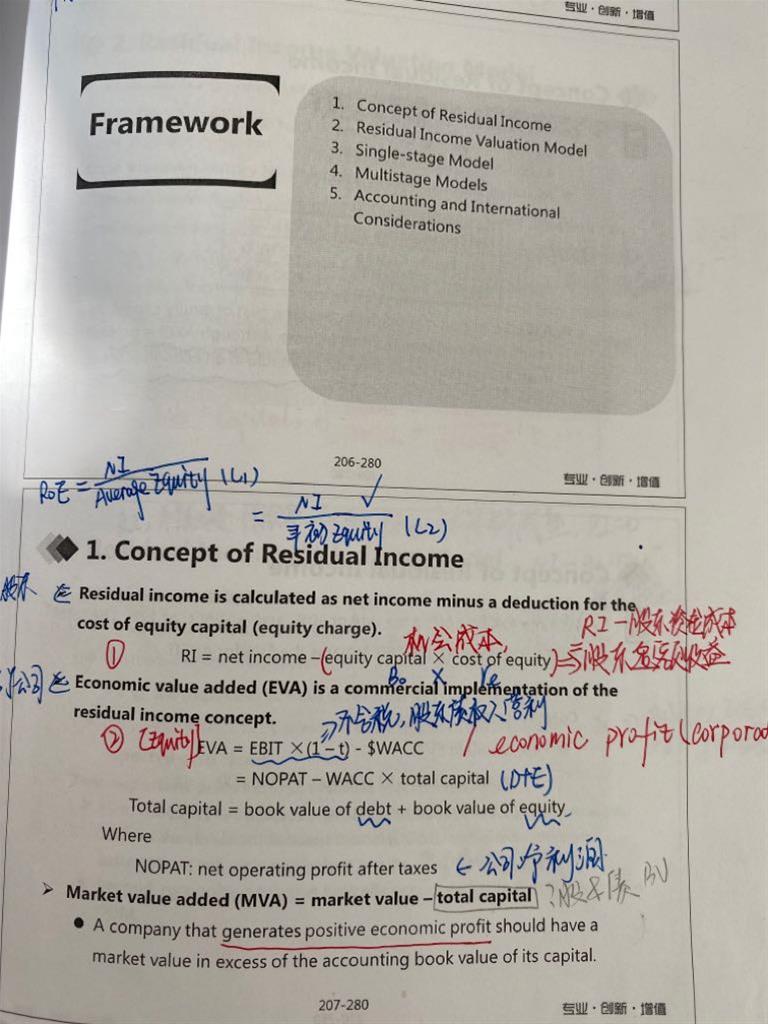 专业·创新·增值
Framework
1. Concept of Residual Income
2. Residual Income Valuation Model
3. Single-stage Model
4. Multistage Models
5. Accounting and International
Considerations
206-280
专业·创新·增值
ROE = NI / Average Equity (L1)
= NI / 年初 Equity (L2)
1. Concept of Residual Income
Residual income is calculated as net income minus a deduction for the
cost of equity capital (equity charge).
RI - 股东资金成本
机会成本
① RI = net income – (equity capital × cost of equity)
B₀ × re
Economic value added (EVA) is a commercial implementation of the
residual income concept.
不含税,股东债权人
② (Equity) EVA = EBIT ×(1 – t) - $WACC / economic profit (corporat
= NOPAT – WACC × total capital (D+E)
Total capital = book value of debt + book value of equity
Where
NOPAT: net operating profit after taxes ← 公司净利润
➤ Market value added (MVA) = market value – total capital 股&债 BV
● A company that generates positive economic profit should have a
market value in excess of the accounting book value of its capital.
207-280
专业·创新·增值